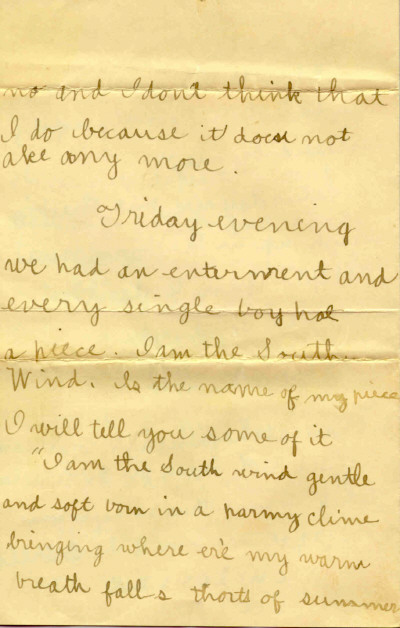 no and I dont think that
I do because it does not
ake any more.
Friday evening
we had an enturment and
every single boy had
a piece. I am the South
Wind. Is the name of my piece
I will tell you some of it
"I am the South wind gentle
and soft born in a parmy clime
bringing where e're my warm
breath falls thorts of summer